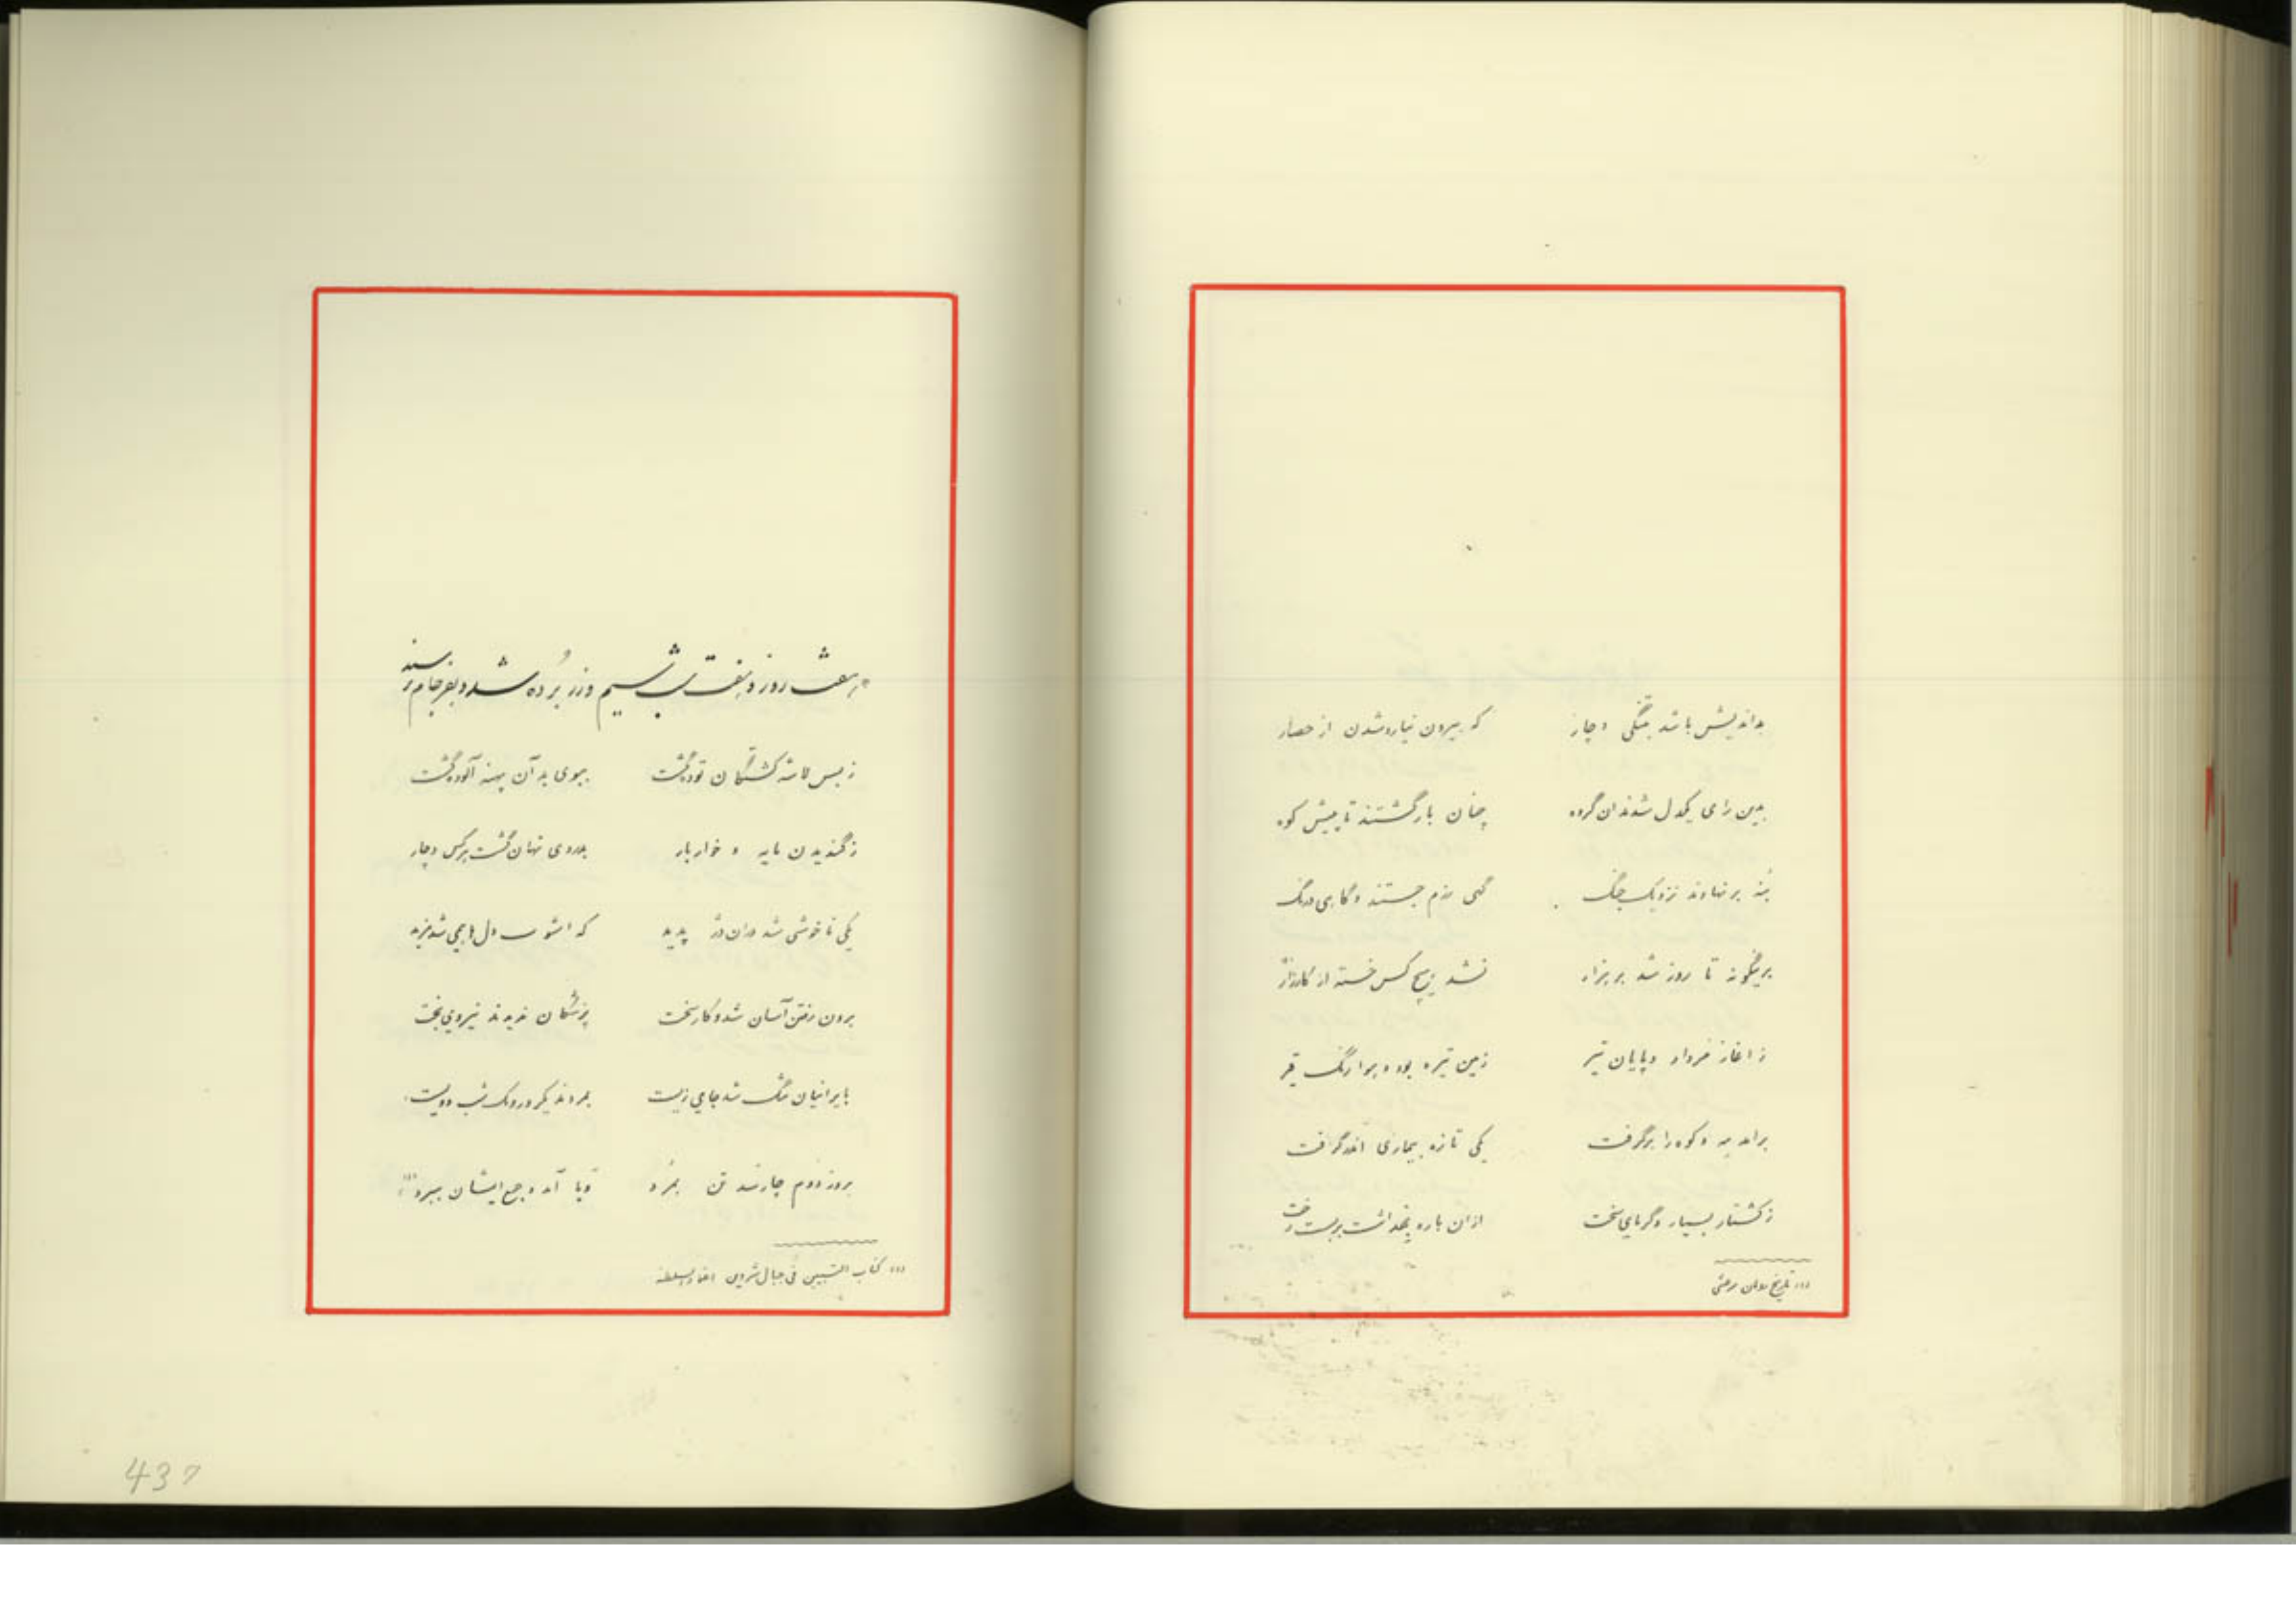 بداندیش باشد بتنگی دچار که بیرون نیارد شدن از حصار
بدین رای یکدل شدند آن گروه چنان بازگشتند تا پیش کوه
بنه برنهادند نزدیک جنگ گهی رزم جستند و گاهی درنگ
برینگونه تا روز شد بر هزار نشد هیچ کس خسته از کارزار
ز آغاز خرداد و پایان تیر زمین تیره بود و هوا رنگ قیر
برآمد مه و کوه را برگرفت یکی تازه بیماری اندر گرفت
ز کشتار بسیار و گرمای سخت ازان باره بهداشت بربست رخت
(۱) تاریخ مرعشی
هفت روز و هفت شب شیم وزز برده شد و بفرجام
ز بس لاشه کشتگان توده گشت ببوی بد آن پهنه آلوده گشت
ز گندیدن مایه و خواربار بدردی نهان گشت هرکس دچار
یکی ناخوشی شد دران دژ پدید که آشوب دل همی شد
برون رفتن آسان شد و کار سخت پزشکان ندیدند نیروی بخت
بایرانیان تنگ شد جای زیست بمردند یکروز و یک شب دویست
بروز دوم چارصد تن بمرد وبا آمد و جمع ایشان ببرد (۱)
(۱) کتاب التدوین فی جبال شروین اعتمادالسلطنه
437